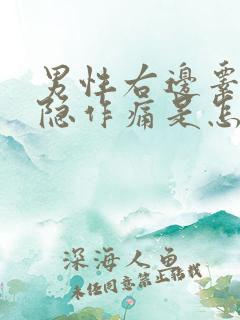 男性右邊睪
隐作痛是怎
深海人鱼
未经同意禁止转载